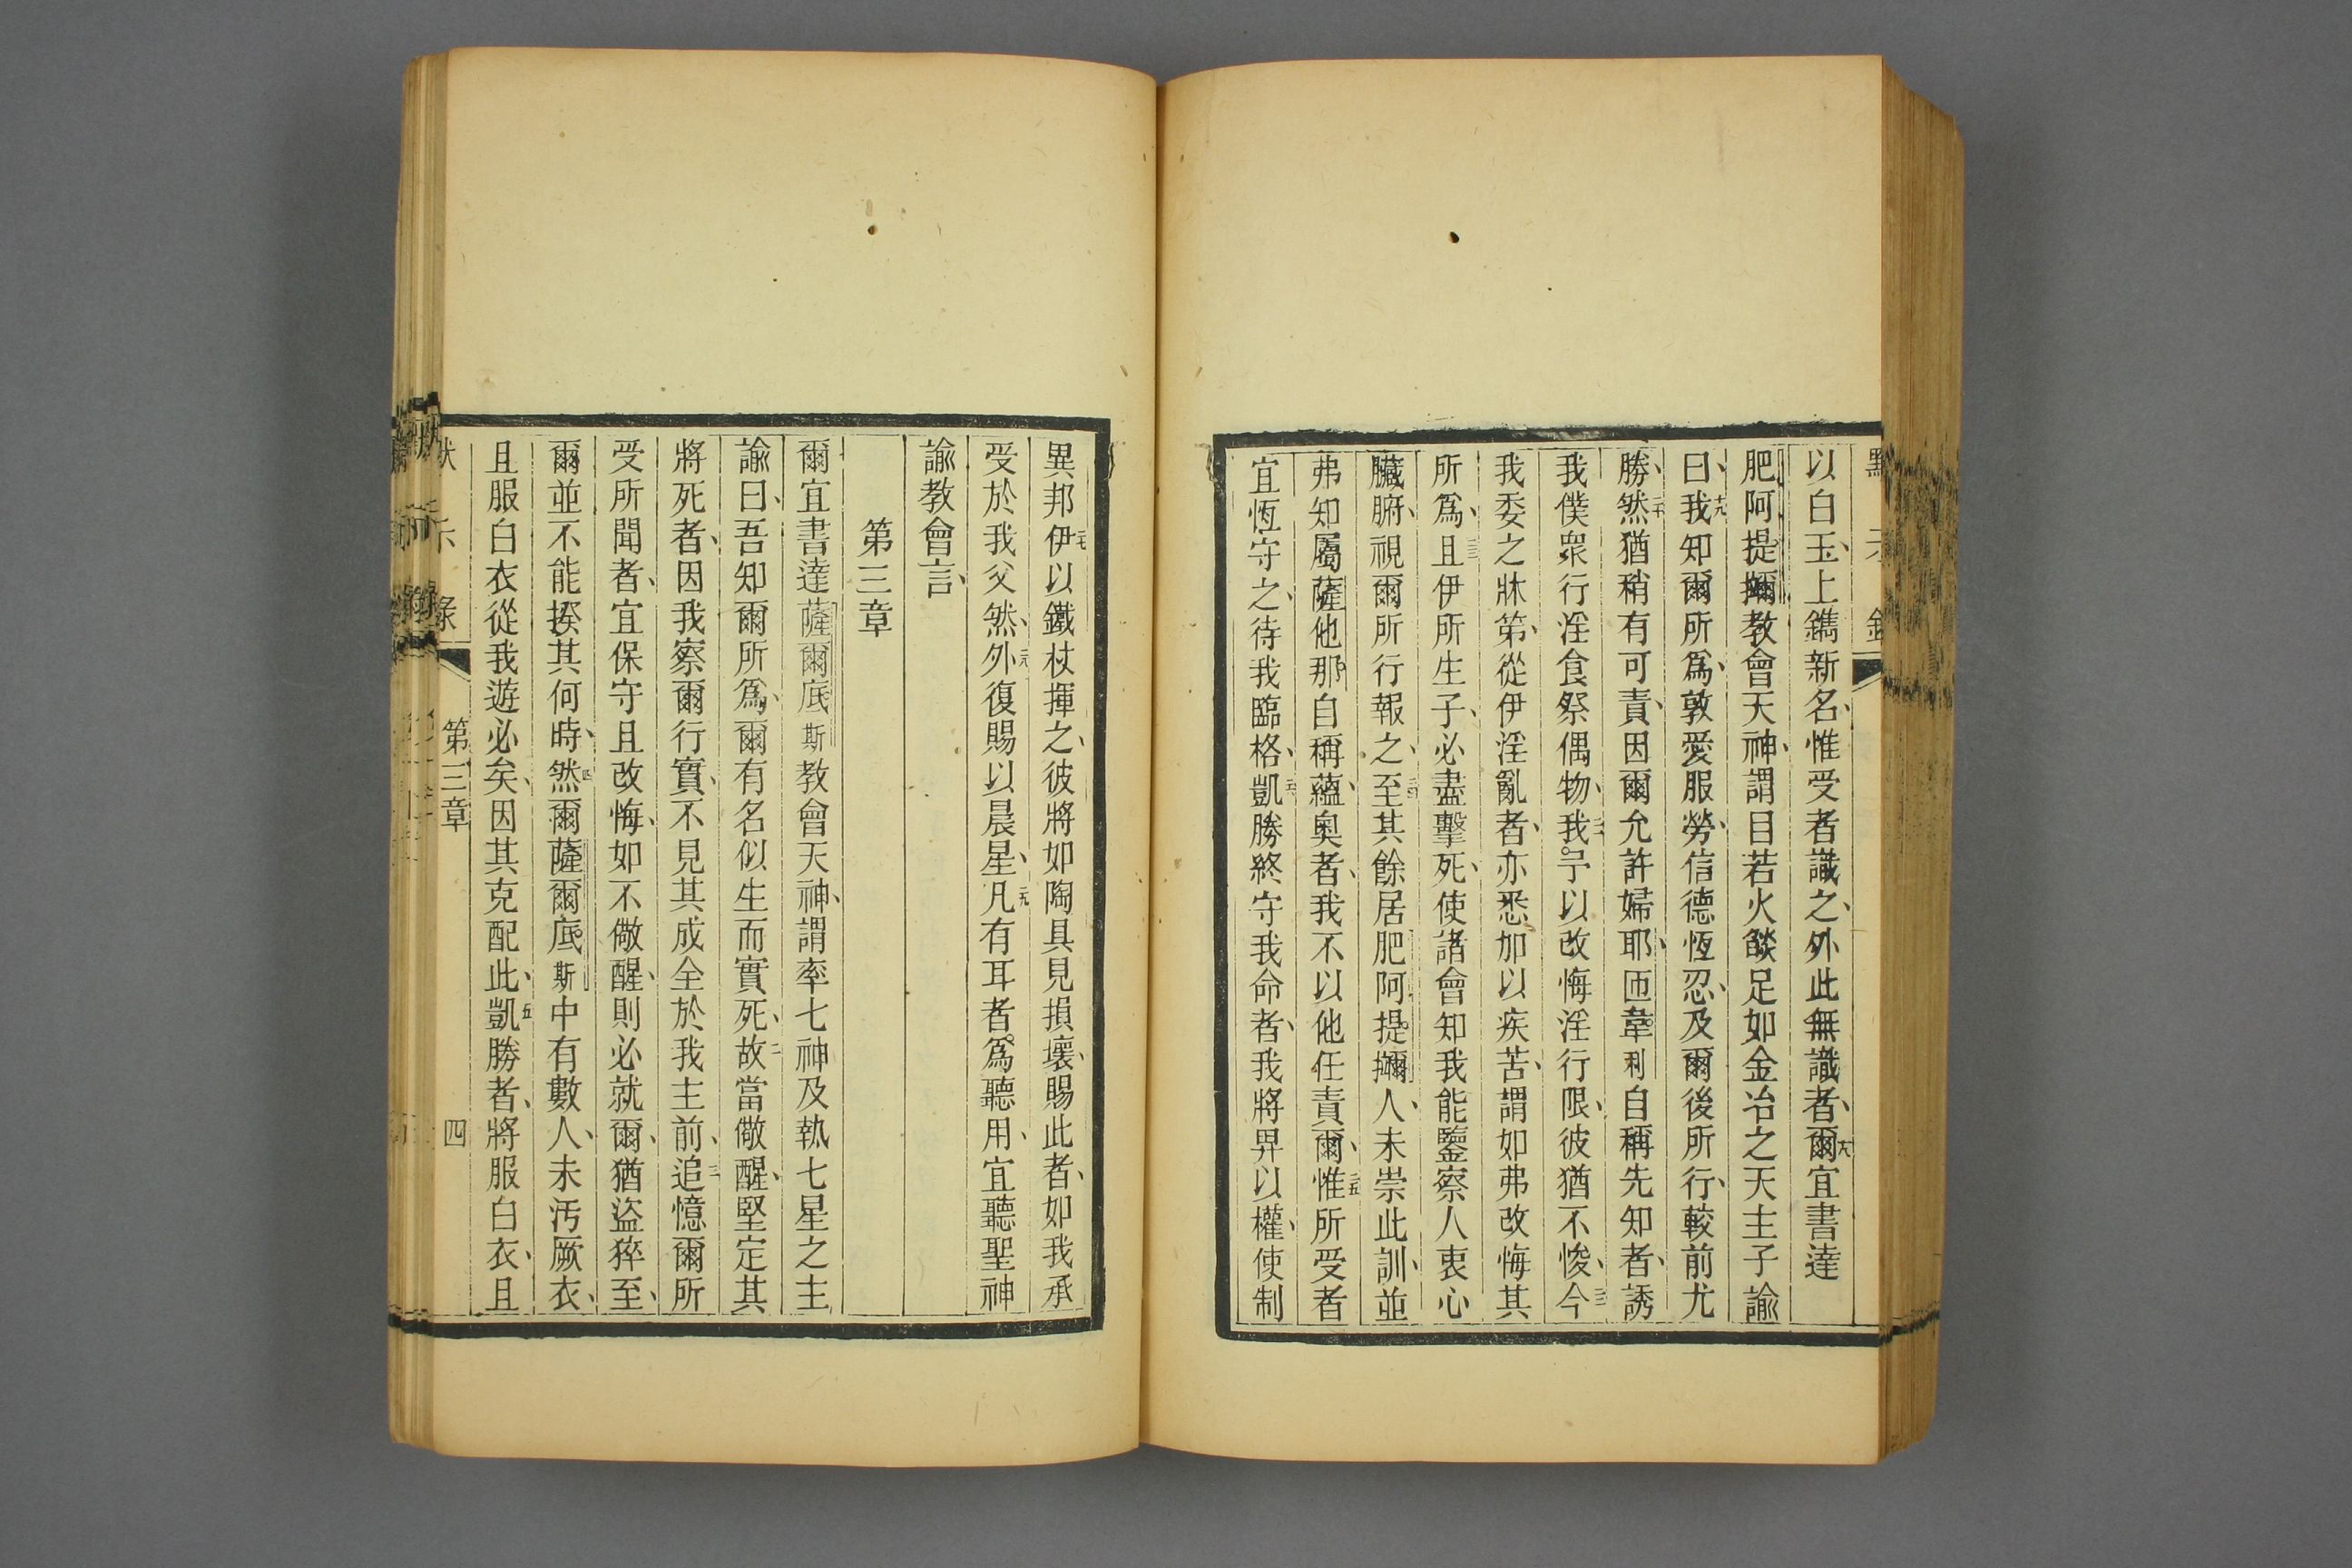 以白玉、上鐫新名、惟受者識之、外此無識者、十八爾宜書達
肥阿提攡教會天神、謂目若火燄足如金冶之天主子諭
曰、十九我知爾所爲、敦愛服勞、信德恆忍、及爾後所行、較前尤
勝、二十然猶稍有可責、因爾允許婦耶、匝韋利自稱先知者、誘
我僕衆行淫食祭偶物、二一我予以改悔淫行限、彼猶不悛、二二今
我委之牀第、從伊淫亂者、亦悉加以疾苦、謂如弗改悔其
所爲、二三且伊所生子、必盡擊死、使諸會知我能鑒察人衷心
臟腑、視爾所行報之、二四至其餘居肥阿提攡人、未崇此訓、並
弗知屬薩他那自稱蘊奧者、我不以他任責爾、二五惟所受者
宜恆守之、待我臨格、二六凱勝終守我命者、我將畀以權、使制
異邦二七伊以鐵杖揮之、彼將如陶具見損壞、賜此者、如我承
受於我父然、二八外復賜以晨星、二九凡有耳者爲聽用、宜聽聖神
諭教會言、
第三章
爾宜書達薩爾底斯教會天神、謂率七神及執七星之主
諭曰、吾知爾所爲、爾有名似生而實死、二故當儆醒、堅定其
將死者、因我察爾行實、不見其成全於我主前、三追憶爾所
受所聞者、宜保守且改悔、如不儆醒、則必就爾、猶盜猝至、
爾並不能揆其何時、四然爾薩爾底斯中有數人、未汚厥衣、
且服白衣從我遊必矣、因其克配此、五凱勝者、將服白衣、且
第三章
四